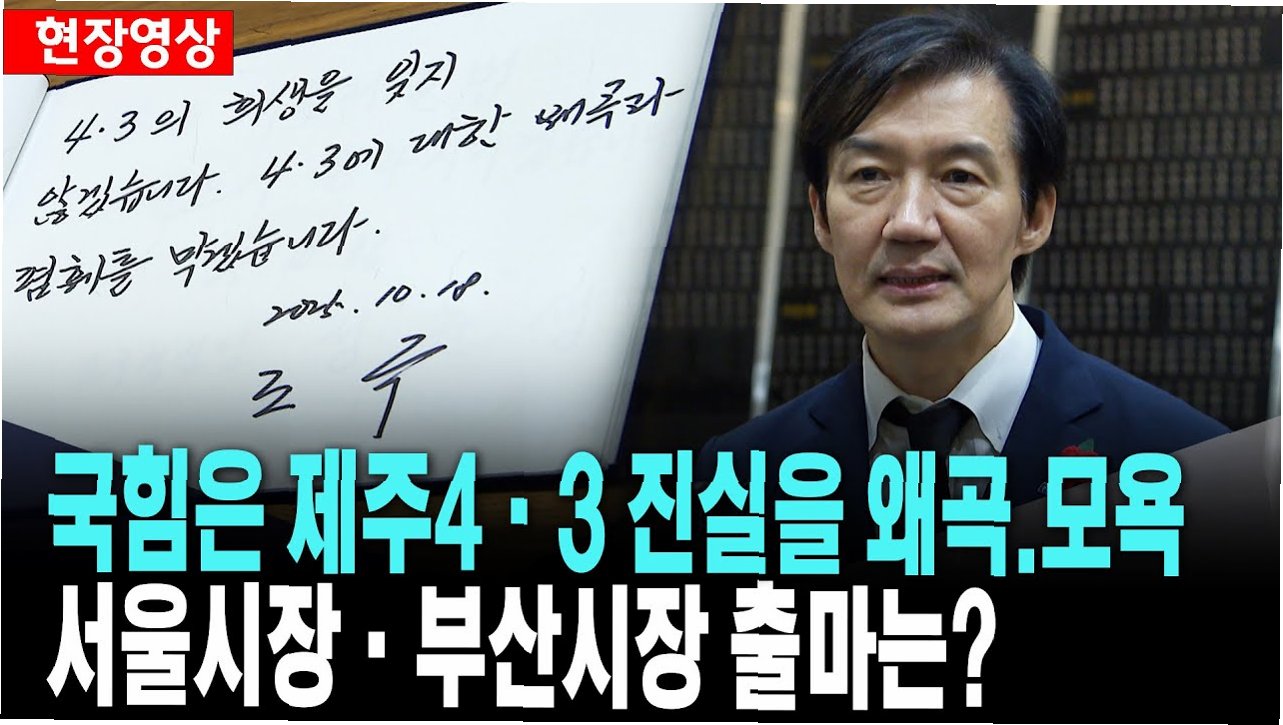 현장영상
4·3의 희생을 잊지
않겠습니다. 4·3에 대한 왜곡과
폄훼를 막겠습니다.
2025. 10. 18.
조국
국힘은 제주4·3 진실을 왜곡.모욕
서울시장·부산시장 출마는?